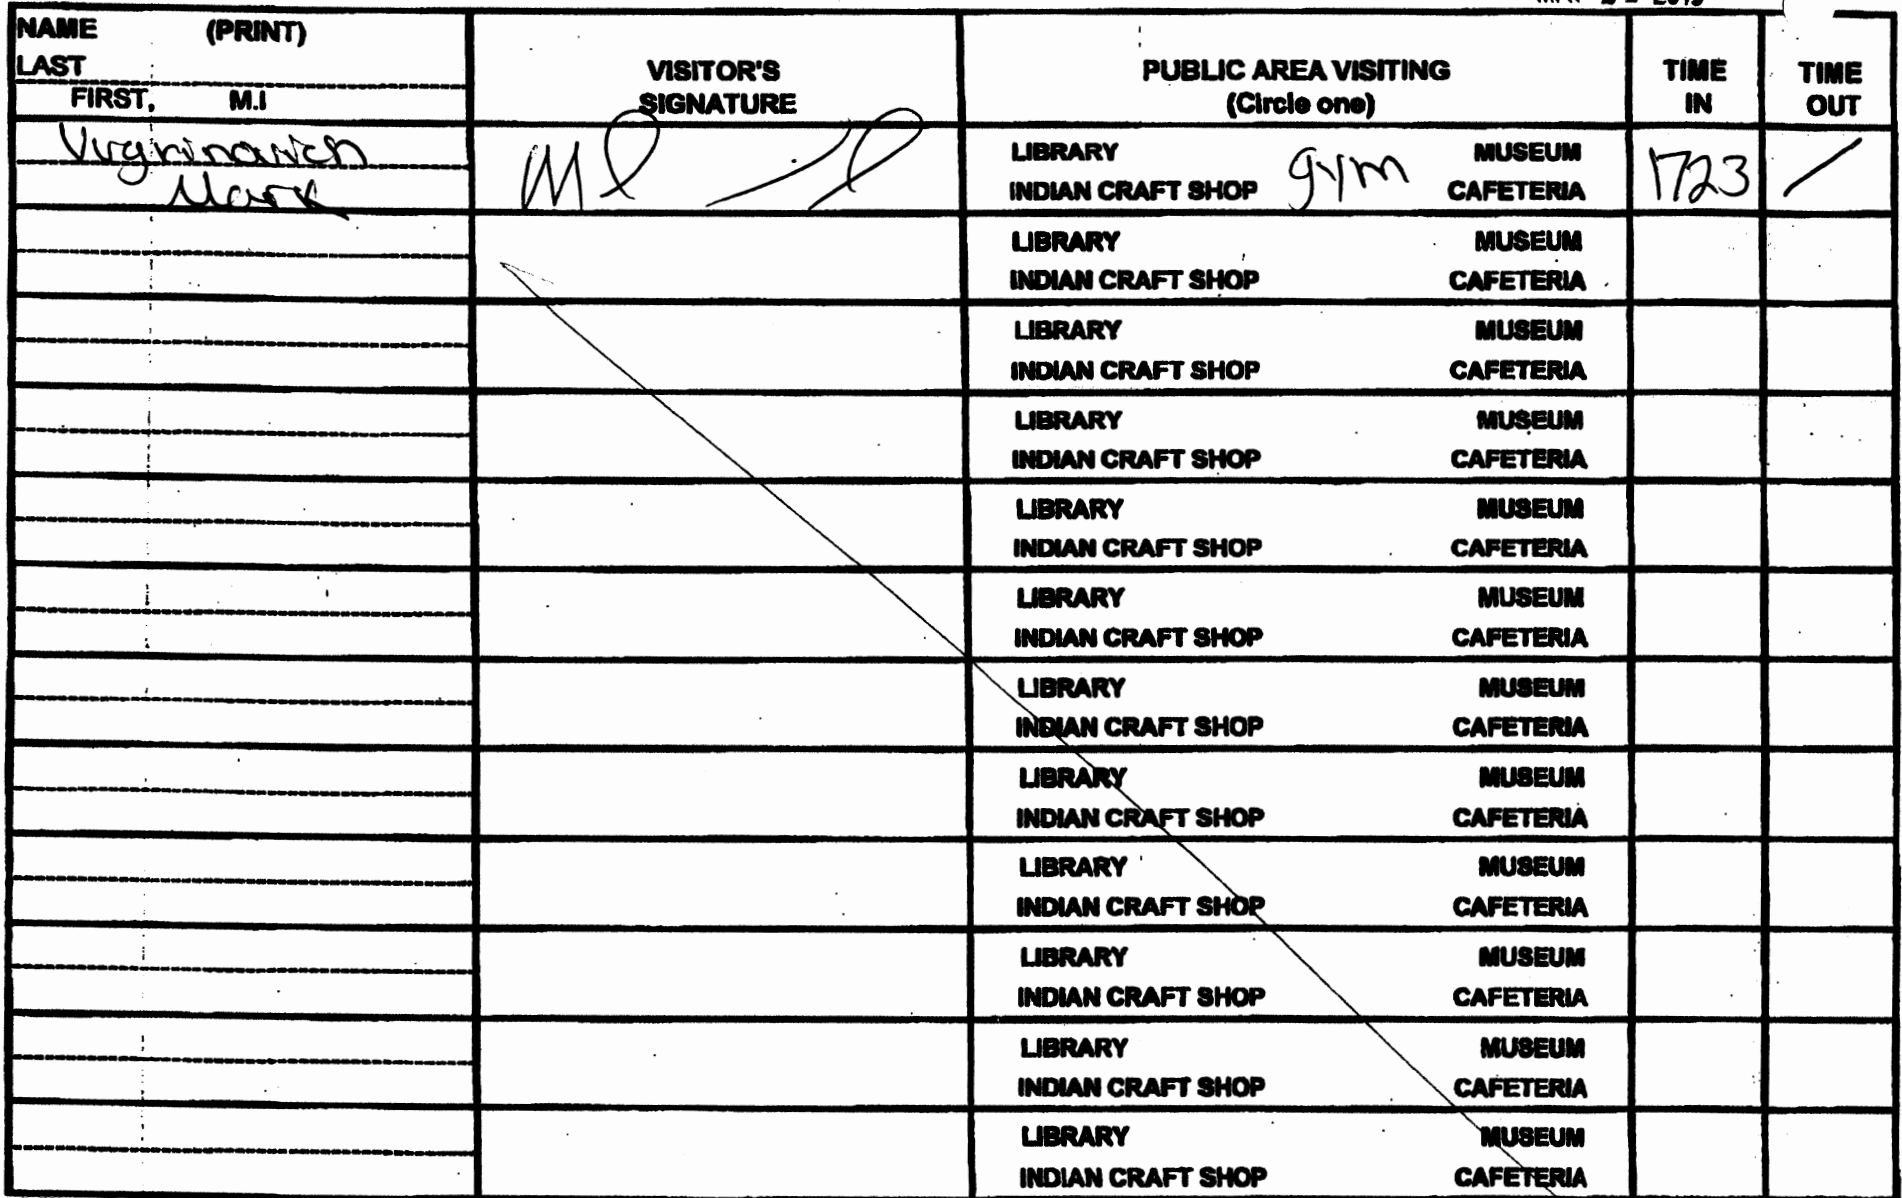 NAME (PRINT)
LAST
FIRST, M.I
VISITOR'S
SIGNATURE
PUBLIC AREA VISITING
(Circle one)
TIME
IN
TIME
OUT
Mark
LIBRARY gym MUSEUM
INDIAN CRAFT SHOP CAFETERIA
1723
LIBRARY MUSEUM
INDIAN CRAFT SHOP CAFETERIA
LIBRARY MUSEUM
INDIAN CRAFT SHOP CAFETERIA
LIBRARY MUSEUM
INDIAN CRAFT SHOP CAFETERIA
LIBRARY MUSEUM
INDIAN CRAFT SHOP CAFETERIA
LIBRARY MUSEUM
INDIAN CRAFT SHOP CAFETERIA
LIBRARY MUSEUM
INDIAN CRAFT SHOP CAFETERIA
LIBRARY MUSEUM
INDIAN CRAFT SHOP CAFETERIA
LIBRARY MUSEUM
INDIAN CRAFT SHOP CAFETERIA
LIBRARY MUSEUM
INDIAN CRAFT SHOP CAFETERIA
LIBRARY MUSEUM
INDIAN CRAFT SHOP CAFETERIA
LIBRARY MUSEUM
INDIAN CRAFT SHOP CAFETERIA